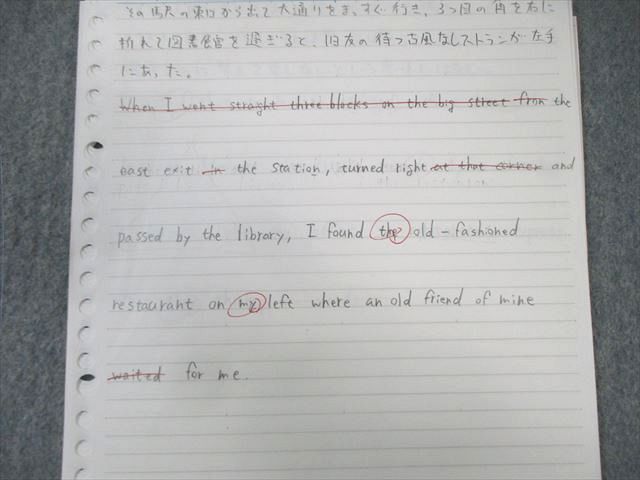 その駅の東口から出て大通りをまっすぐ行き、3つ目の角を右に
折れて図書館を過ぎると、旧友の待つ古風なレストランが左手
にあった。
When I went straight three blocks on the big street from the
east exit in the station, turned right at that corner and
passed by the library, I found the old-fashioned
restaurant on my left where an old friend of mine
waited for me.